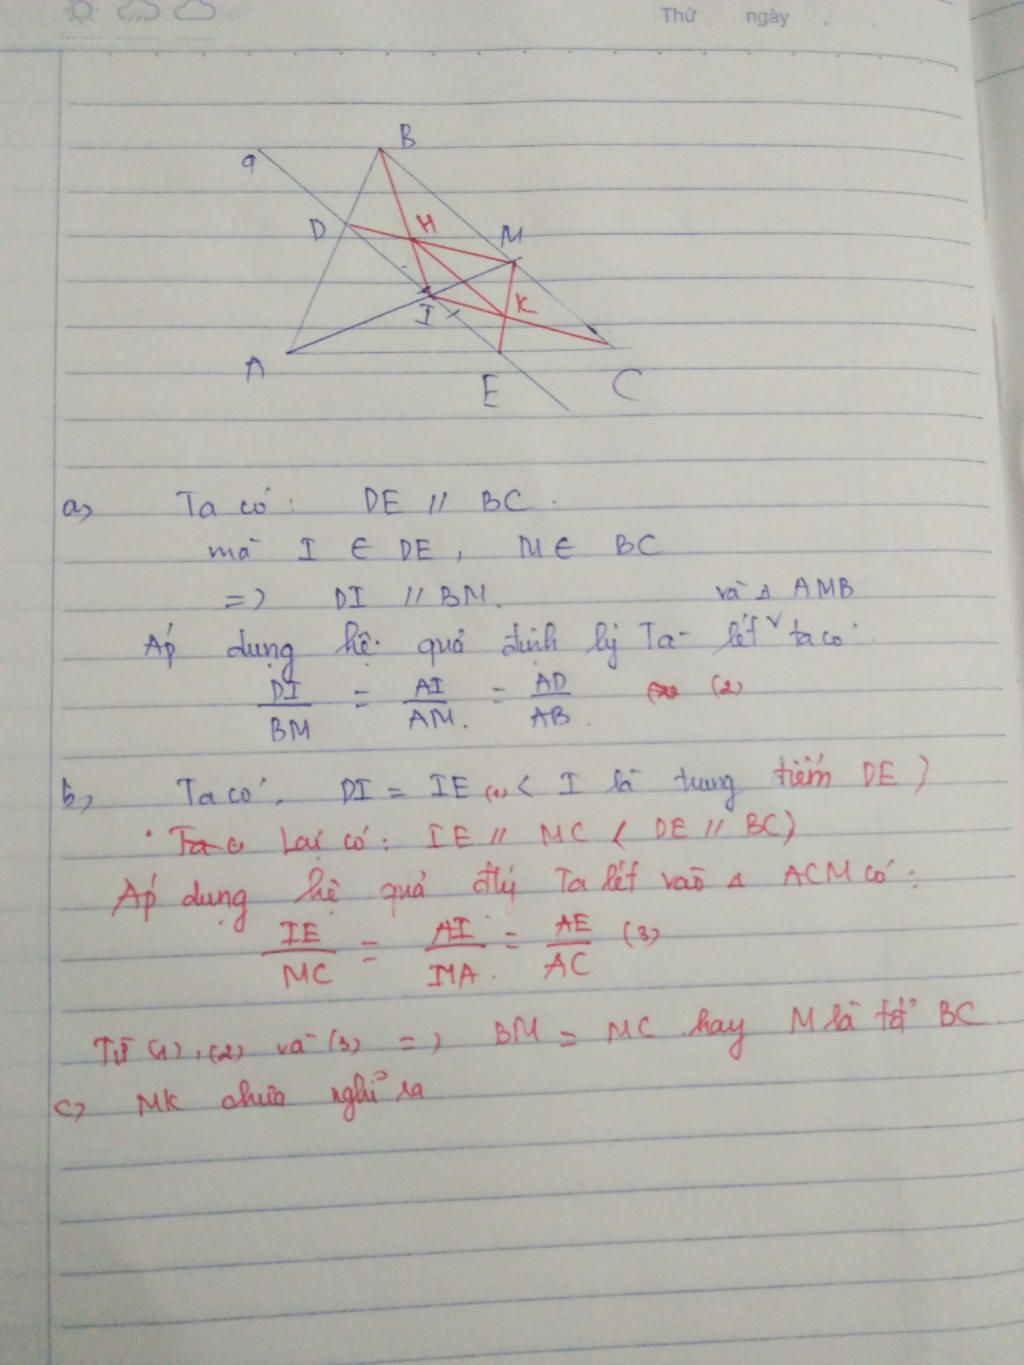 Thứ ngày
a
B
D
H
M
I
K
A
E
C
a, Ta có: DE // BC.
mà I ∈ DE, M ∈ BC
=> DI // BM. và Δ AMB
Áp dụng hệ quả định lý Ta-lét ta có
DI / BM = AI / AM. = AD / AB. (2)
b, Ta có. DI = IE (1) < I là trung tiếm DE )
Lại có: IE // MC ( DE // BC)
Áp dụng hệ quả đlý Ta lét vào Δ ACM có:
IE / MC = AI / MA. = AE / AC (3)
Từ (1), (2) và (3) =) BM = MC hay M là tđ BC
c, MK chưa nghĩ ra